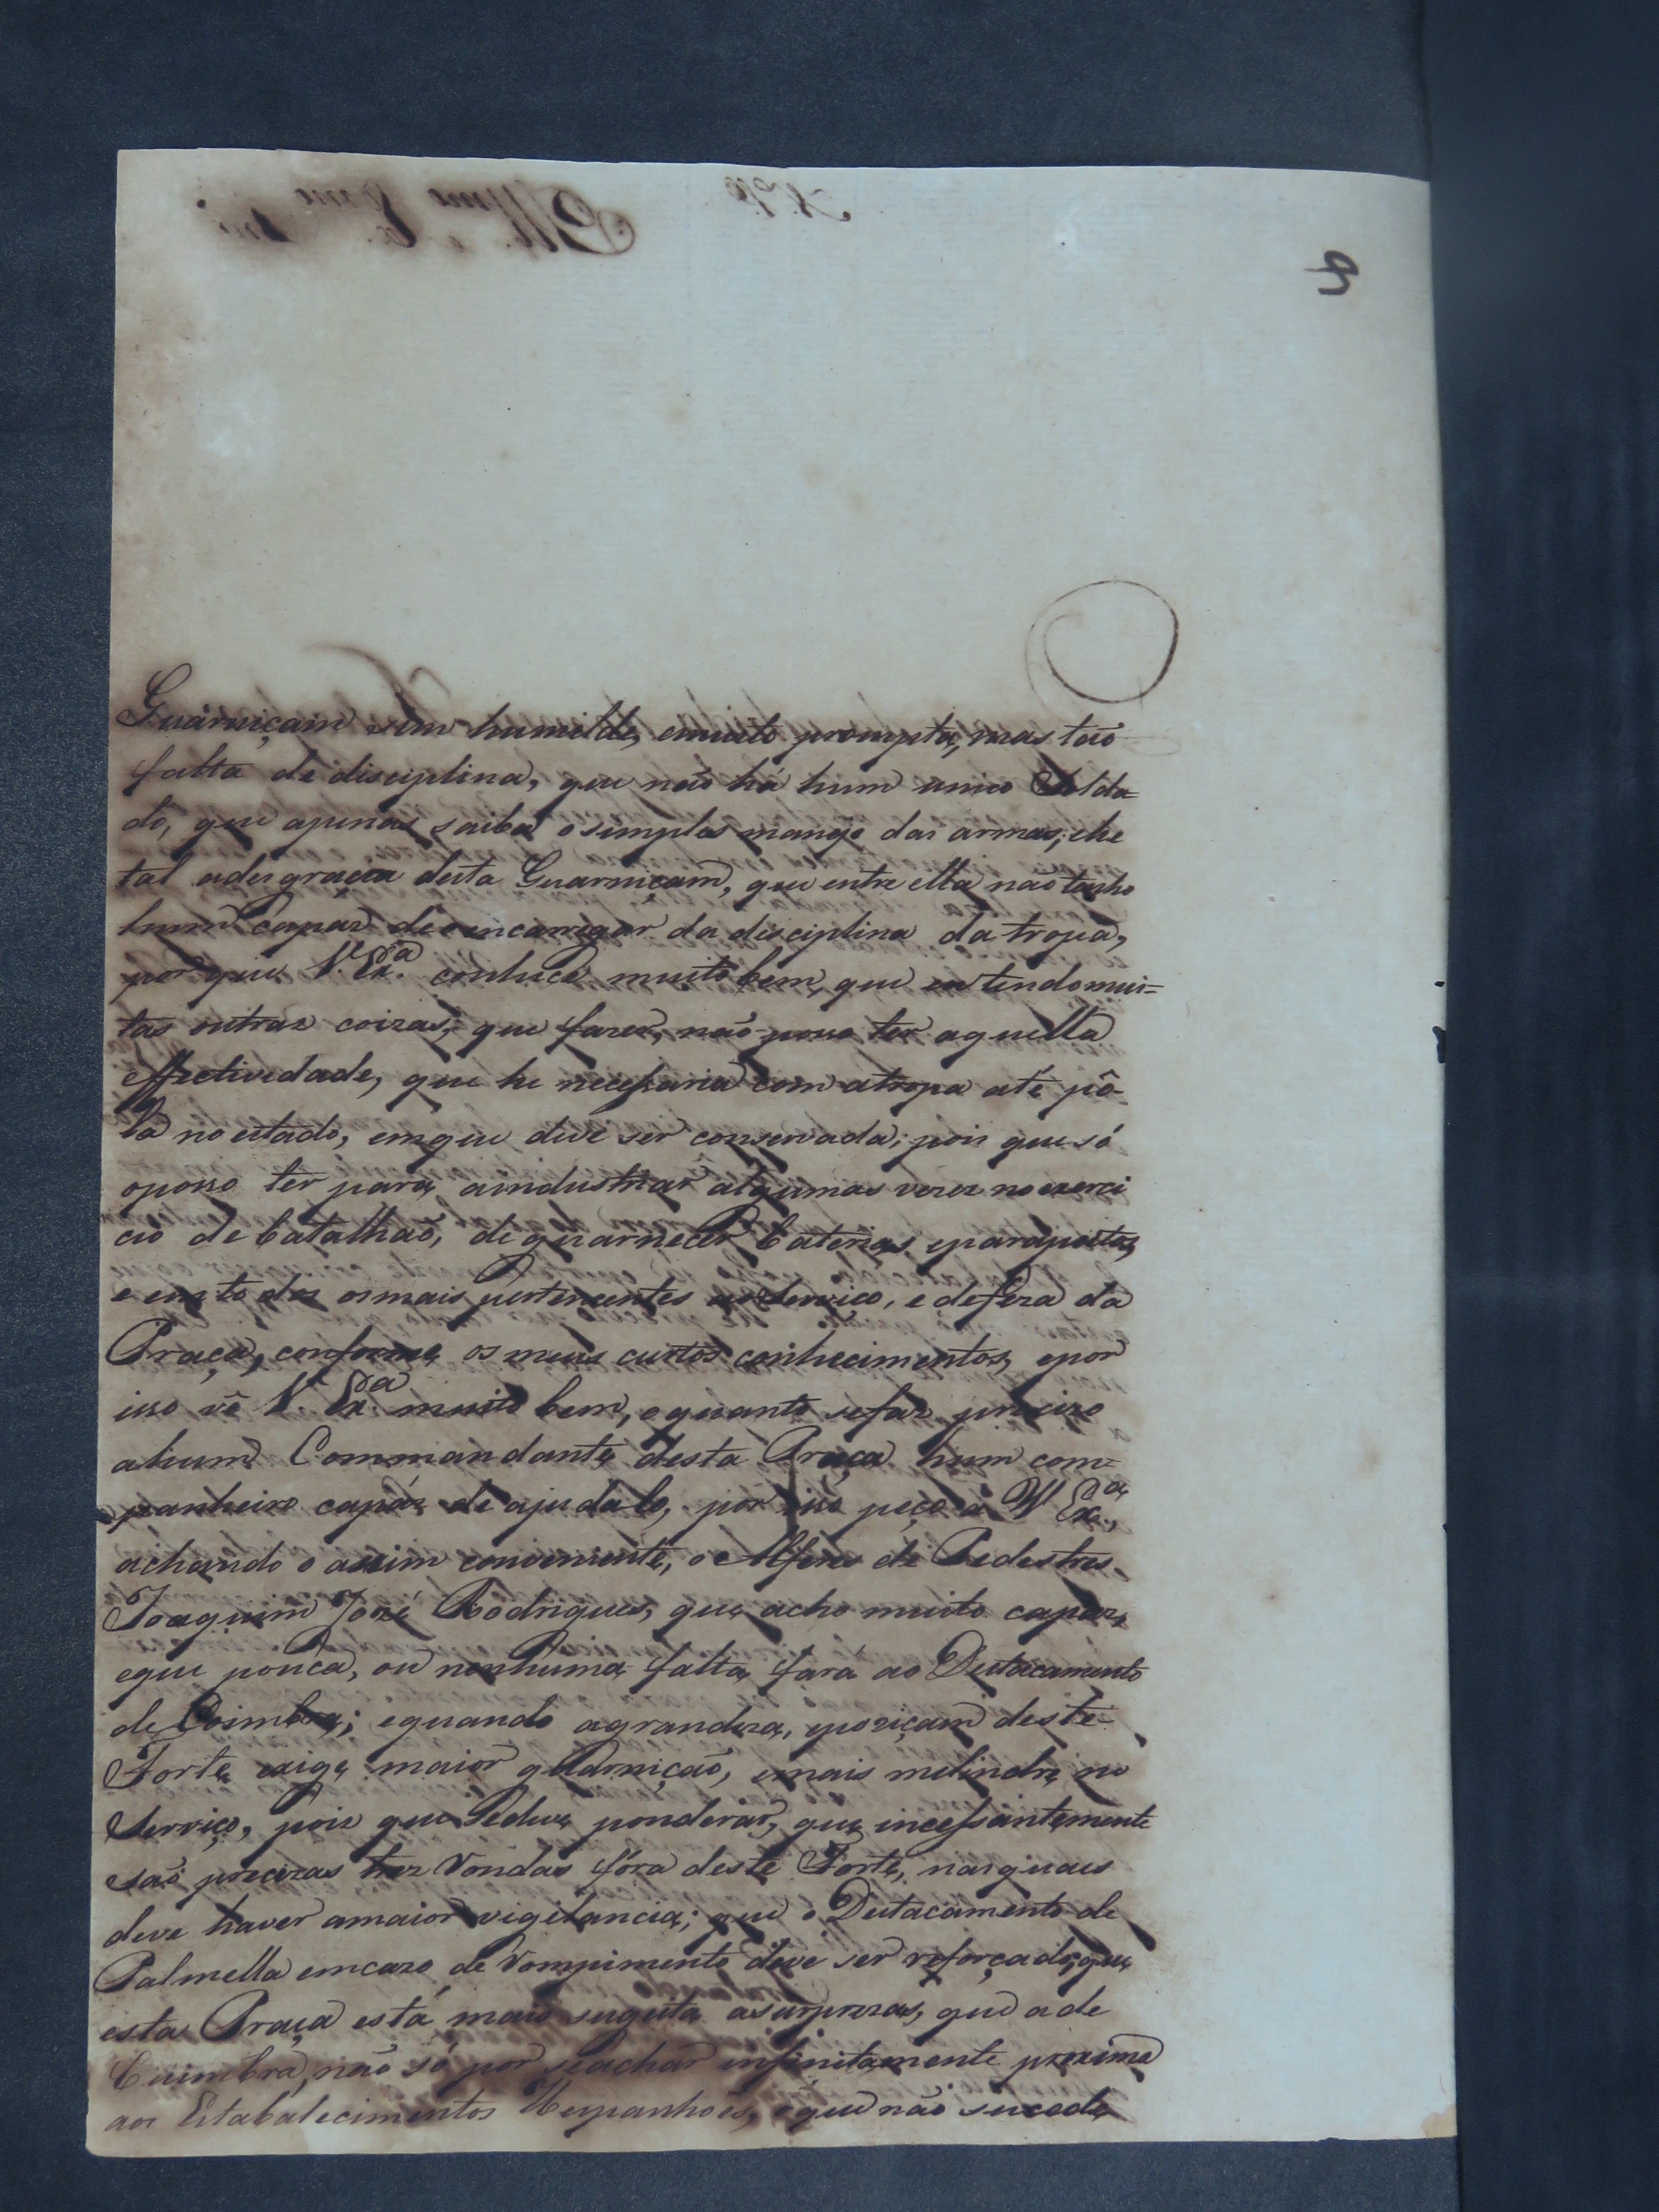 9
Guarniçam sim humilde, emuito prompta, mas taõ
falta de disciplina, que naõ há hum unico Solda=
do, que apenas saiba osimples manejo das armas; ehe
tal adesgraça desta Guarniçam, que entre ella naõ tenho
hum capaz de encarregar da disciplina da tropa,
por que V. Ex.ª conhece muito bem, que eu tendo mui=
tas outras coizas, que fazer, naõ posso ter aquella
effectividade, que he necessaria com atropa até pô-
la no estado, emque deve ser conservada; pois que só
oposso ter para aindustriar algumas vezes no exerci
cio de batalhaõ, de guarnecer baterias, eparapeitos,
e em todos osmais pertencentes ao Serviço, e defeza da
Praça, conforme os meus curtos conhecimentos, epor
isso vê V. Ex.ª muito bem, oquanto sefaz precizo
ahum Commandante desta Praça hum com=
panheiro capáz de ajudalo, por isso peço a V Ex.ª,
achando o assim conveniente, o Alferes de Pedestres
Joaquim José Rodrigues, que acho muito capaz,
eque pouca, ou nenhuma falta fará ao Destacamento
de Coimbra; equando agrandeza, epoziçam deste
Forte exige maior guarniçaõ, emais melindre no
Serviço, pois que Sedeve ponderar, que incessantemente
saõ precizas trez Rondas fóra deste Forte, nasquaes
deve haver amaior vigilancia; que o Destacamento de
Palmella emcazo de Rompimento deve ser reforçado; que
esta Praça está mais sugeita asurprezas, que a de
Coimbra, naõ só por seachar infinitamente proxima
aos Estabalecimentos Hespanhoes, oque naõ sucede